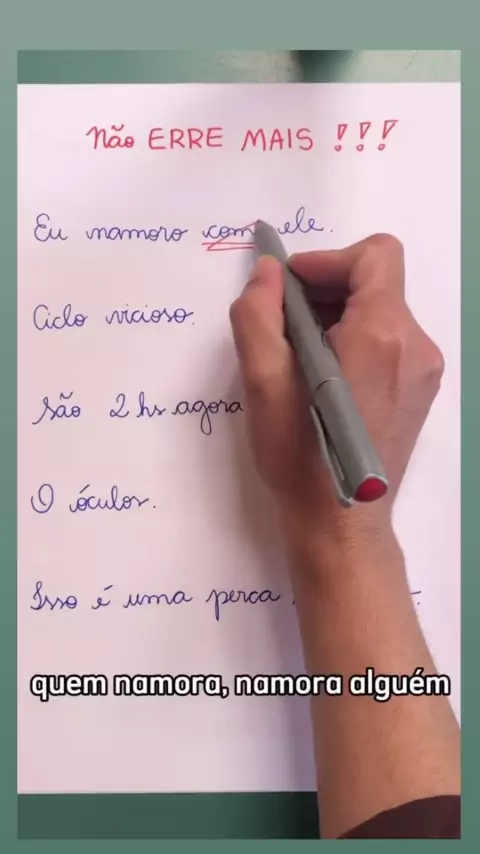 Não ERRE MAIS !!!
Eu namoro com ele.
Ciclo vicioso.
São 2 hs agora
O óculos.
Isso é uma perca
quem namora, namora alguém